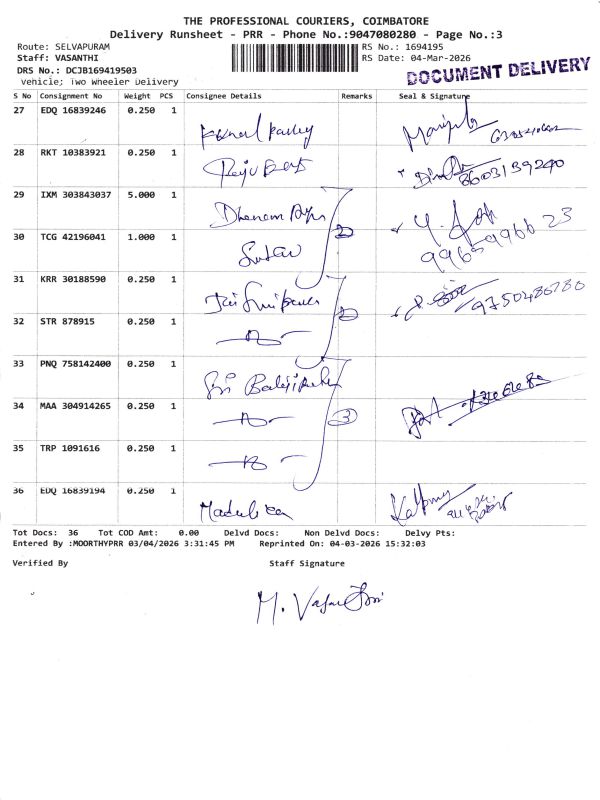 THE PROFESSIONAL COURIERS, COIMBATORE
Delivery Runsheet - PRR - Phone No.:9047080280 - Page No.:3
Route: SELVAPURAM
Staff: VASANTHI
DRS No.: DCJB169419503
Vehicle; Two Wheeler Delivery
RS No.: 1694195
RS Date: 04-Mar-2026
DOCUMENT DELIVERY
S No Consignment No Weight PCS Consignee Details Remarks Seal & Signature
27 EDQ 16839246 0.250 1
28 RKT 10383921 0.250 1 8603139290
29 IXM 303843037 5.000 1 Dhanam
30 TCG 42196041 1.000 1 2 9965996623
31 KRR 30188590 0.250 1 9750486780
32 STR 878915 0.250 1 2
33 PNQ 758142400 0.250 1 Sri Balaji
34 MAA 304914265 0.250 1 3
35 TRP 1091616 0.250 1
36 EDQ 16839194 0.250 1
Tot Docs: 36 Tot COD Amt: 0.00 Delvd Docs: Non Delvd Docs: Delvy Pts:
Entered By :MOORTHYPRR 03/04/2026 3:31:45 PM Reprinted On: 04-03-2026 15:32:03
Verified By Staff Signature
M. Vasanthi